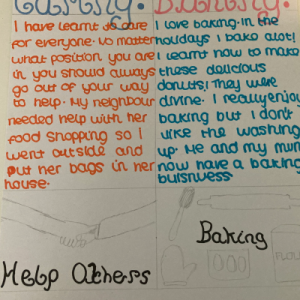 I have learnt to care
for everyone. No matter
what position you are
in you should always
go out of your way
to help. My neighbour
needed help with her
food shopping so I
went outside and
put her bags in her
house.
Help Others
I love baking. In the
holidays I bake alot!
I learnt how to make
these delicious
donuts! They were
divine. I really enjoy
baking but I don't
like the washing
up. Me and my mum
now have a baking
buisnwess
Baking